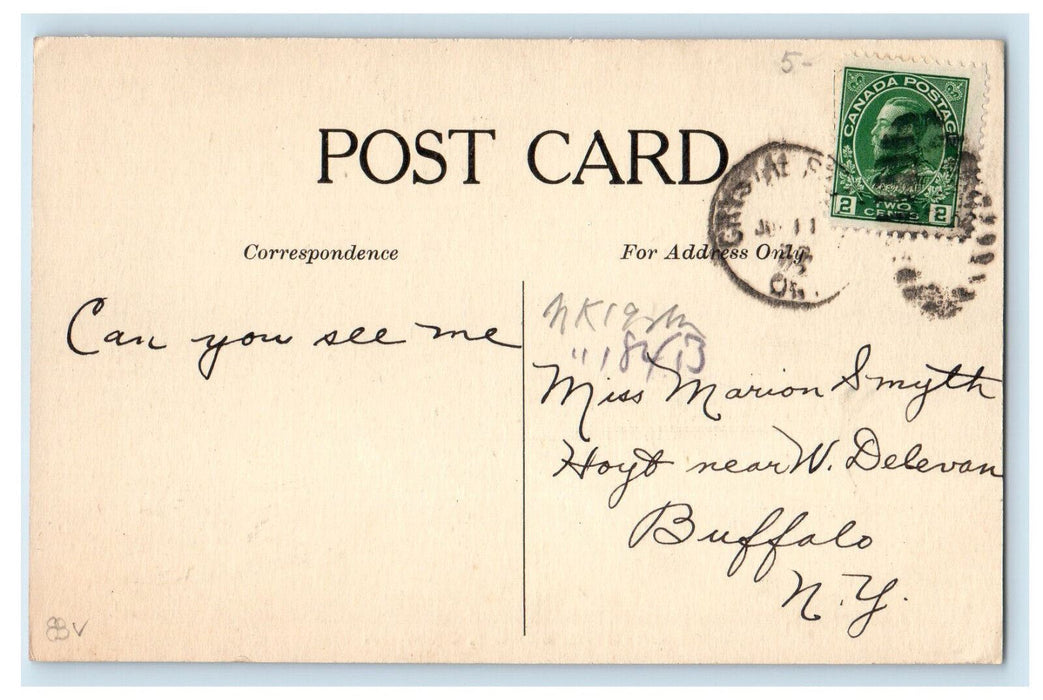 5-
POST CARD
CANADA POSTAGE
2 TWO CENTS 2
CRYSTAL
11
ON.
Correspondence
For Address Only.
Can you see me
Miss Marion Smyth
Hoyt near W. Delevan
Buffalo
N.Y.